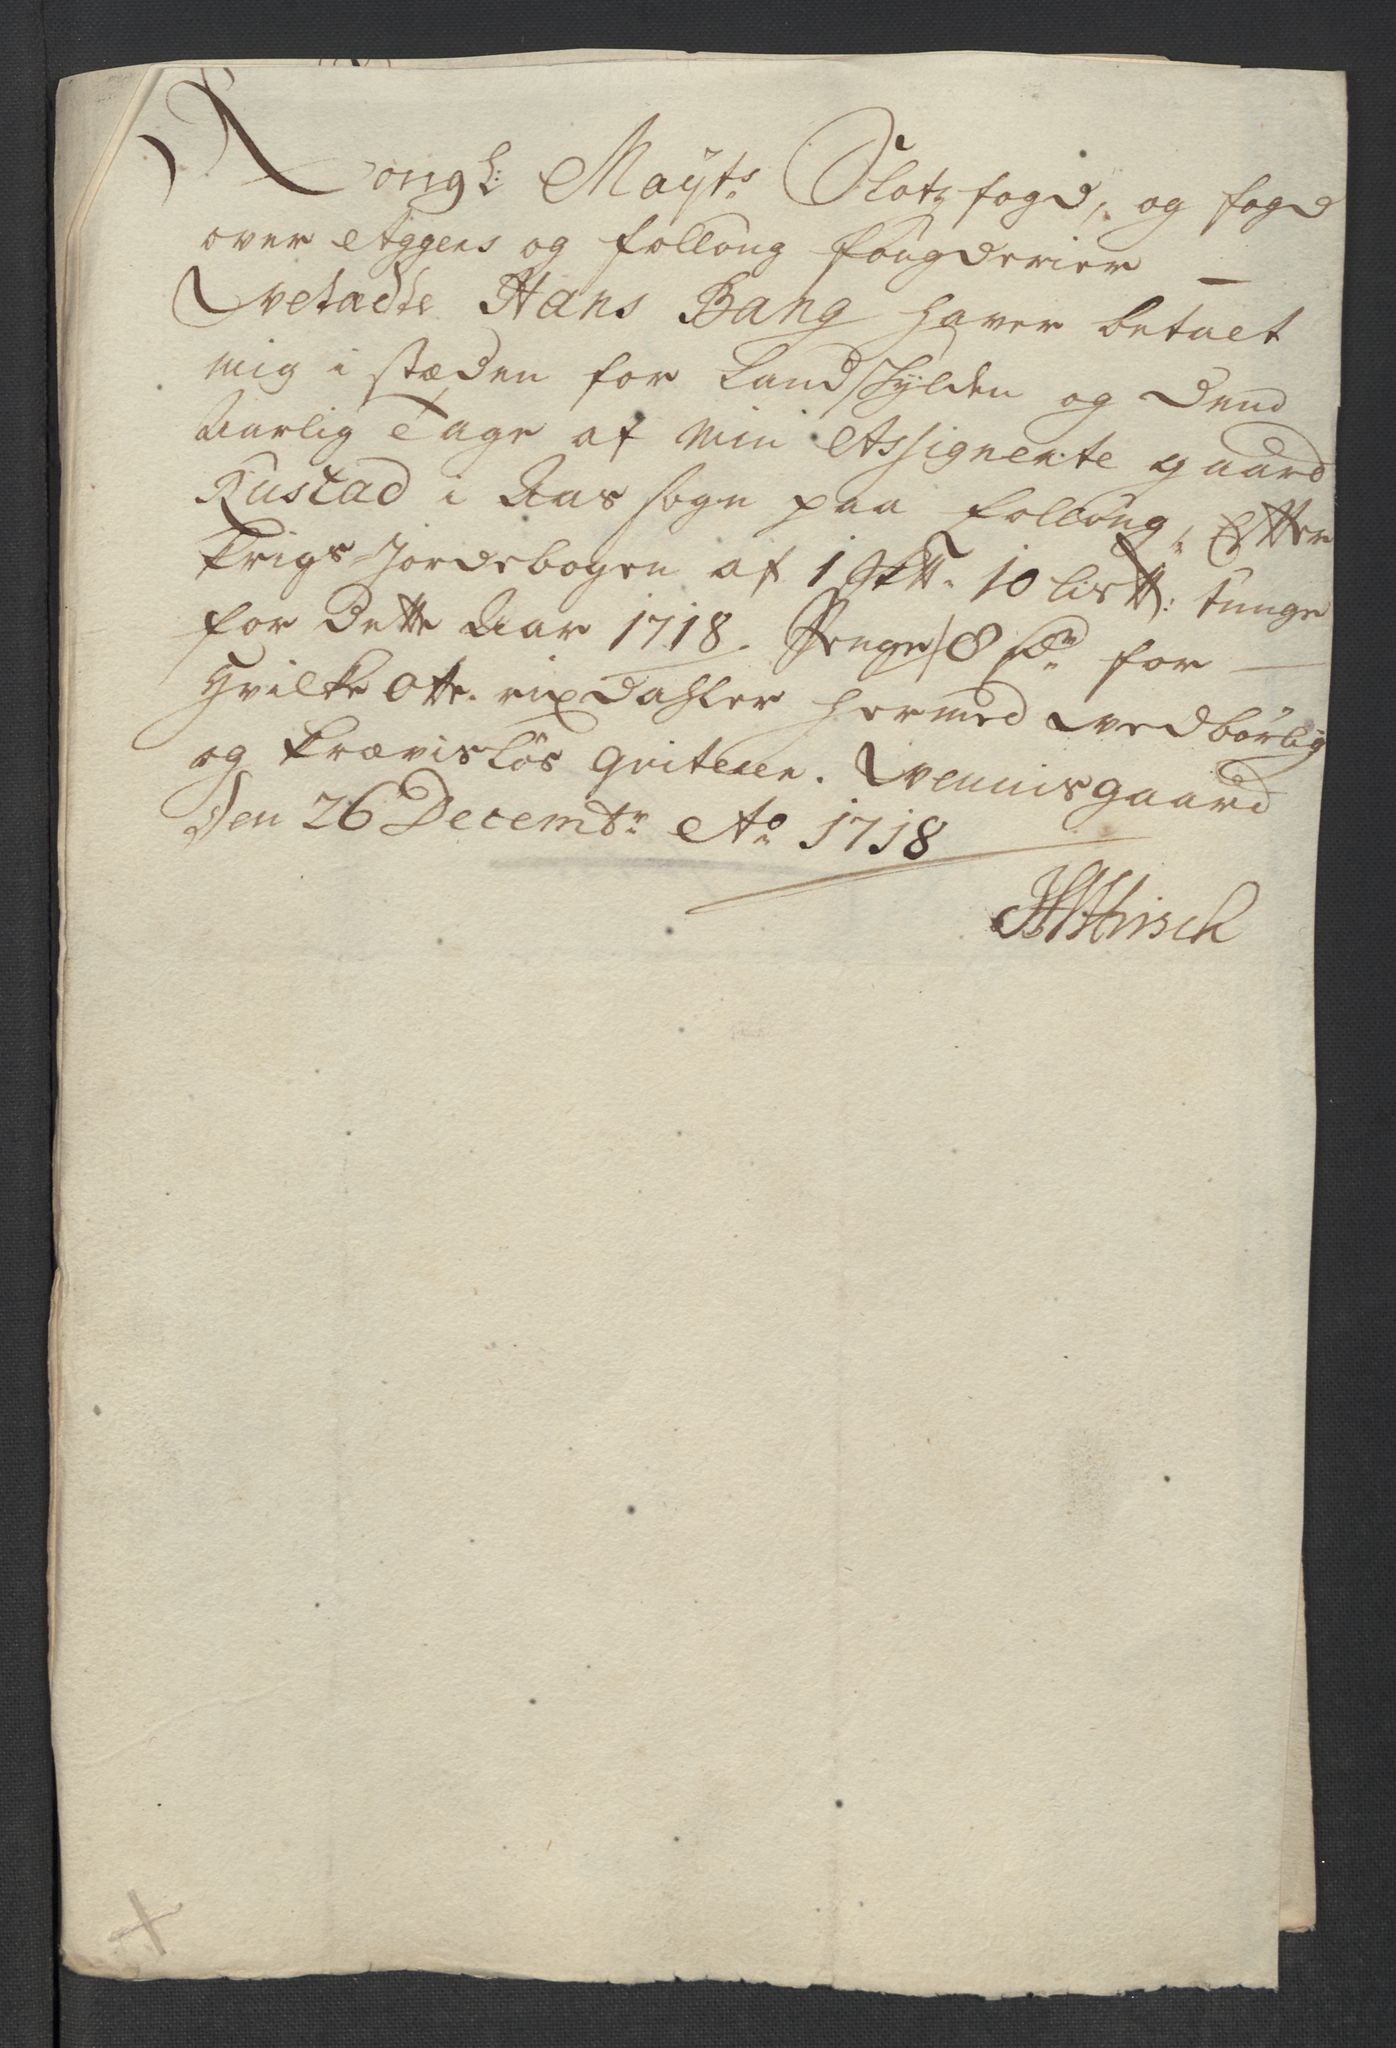 Kongl: Mayts. Slotz fogd, og fogd
over Aggers og folloug fougderier —
Velædle Hans Bang hafver betalt
mig i stæden for Landskylden og dend
Aarlig Tage af min Assignerte gaard
Rustad i Aas sogn paa folloug, Efter
Krigs-Jordebogen af 1 Sk℔. 10 lis℔: tunge
for dette Aar 1718. Penge 8 rdr for —
Hvilke Otte rixdahler hermed vedbørlig
og kravisløs qviterer. Wennisgaard
Den 26 Decembr Ao. 1718
Hirsch